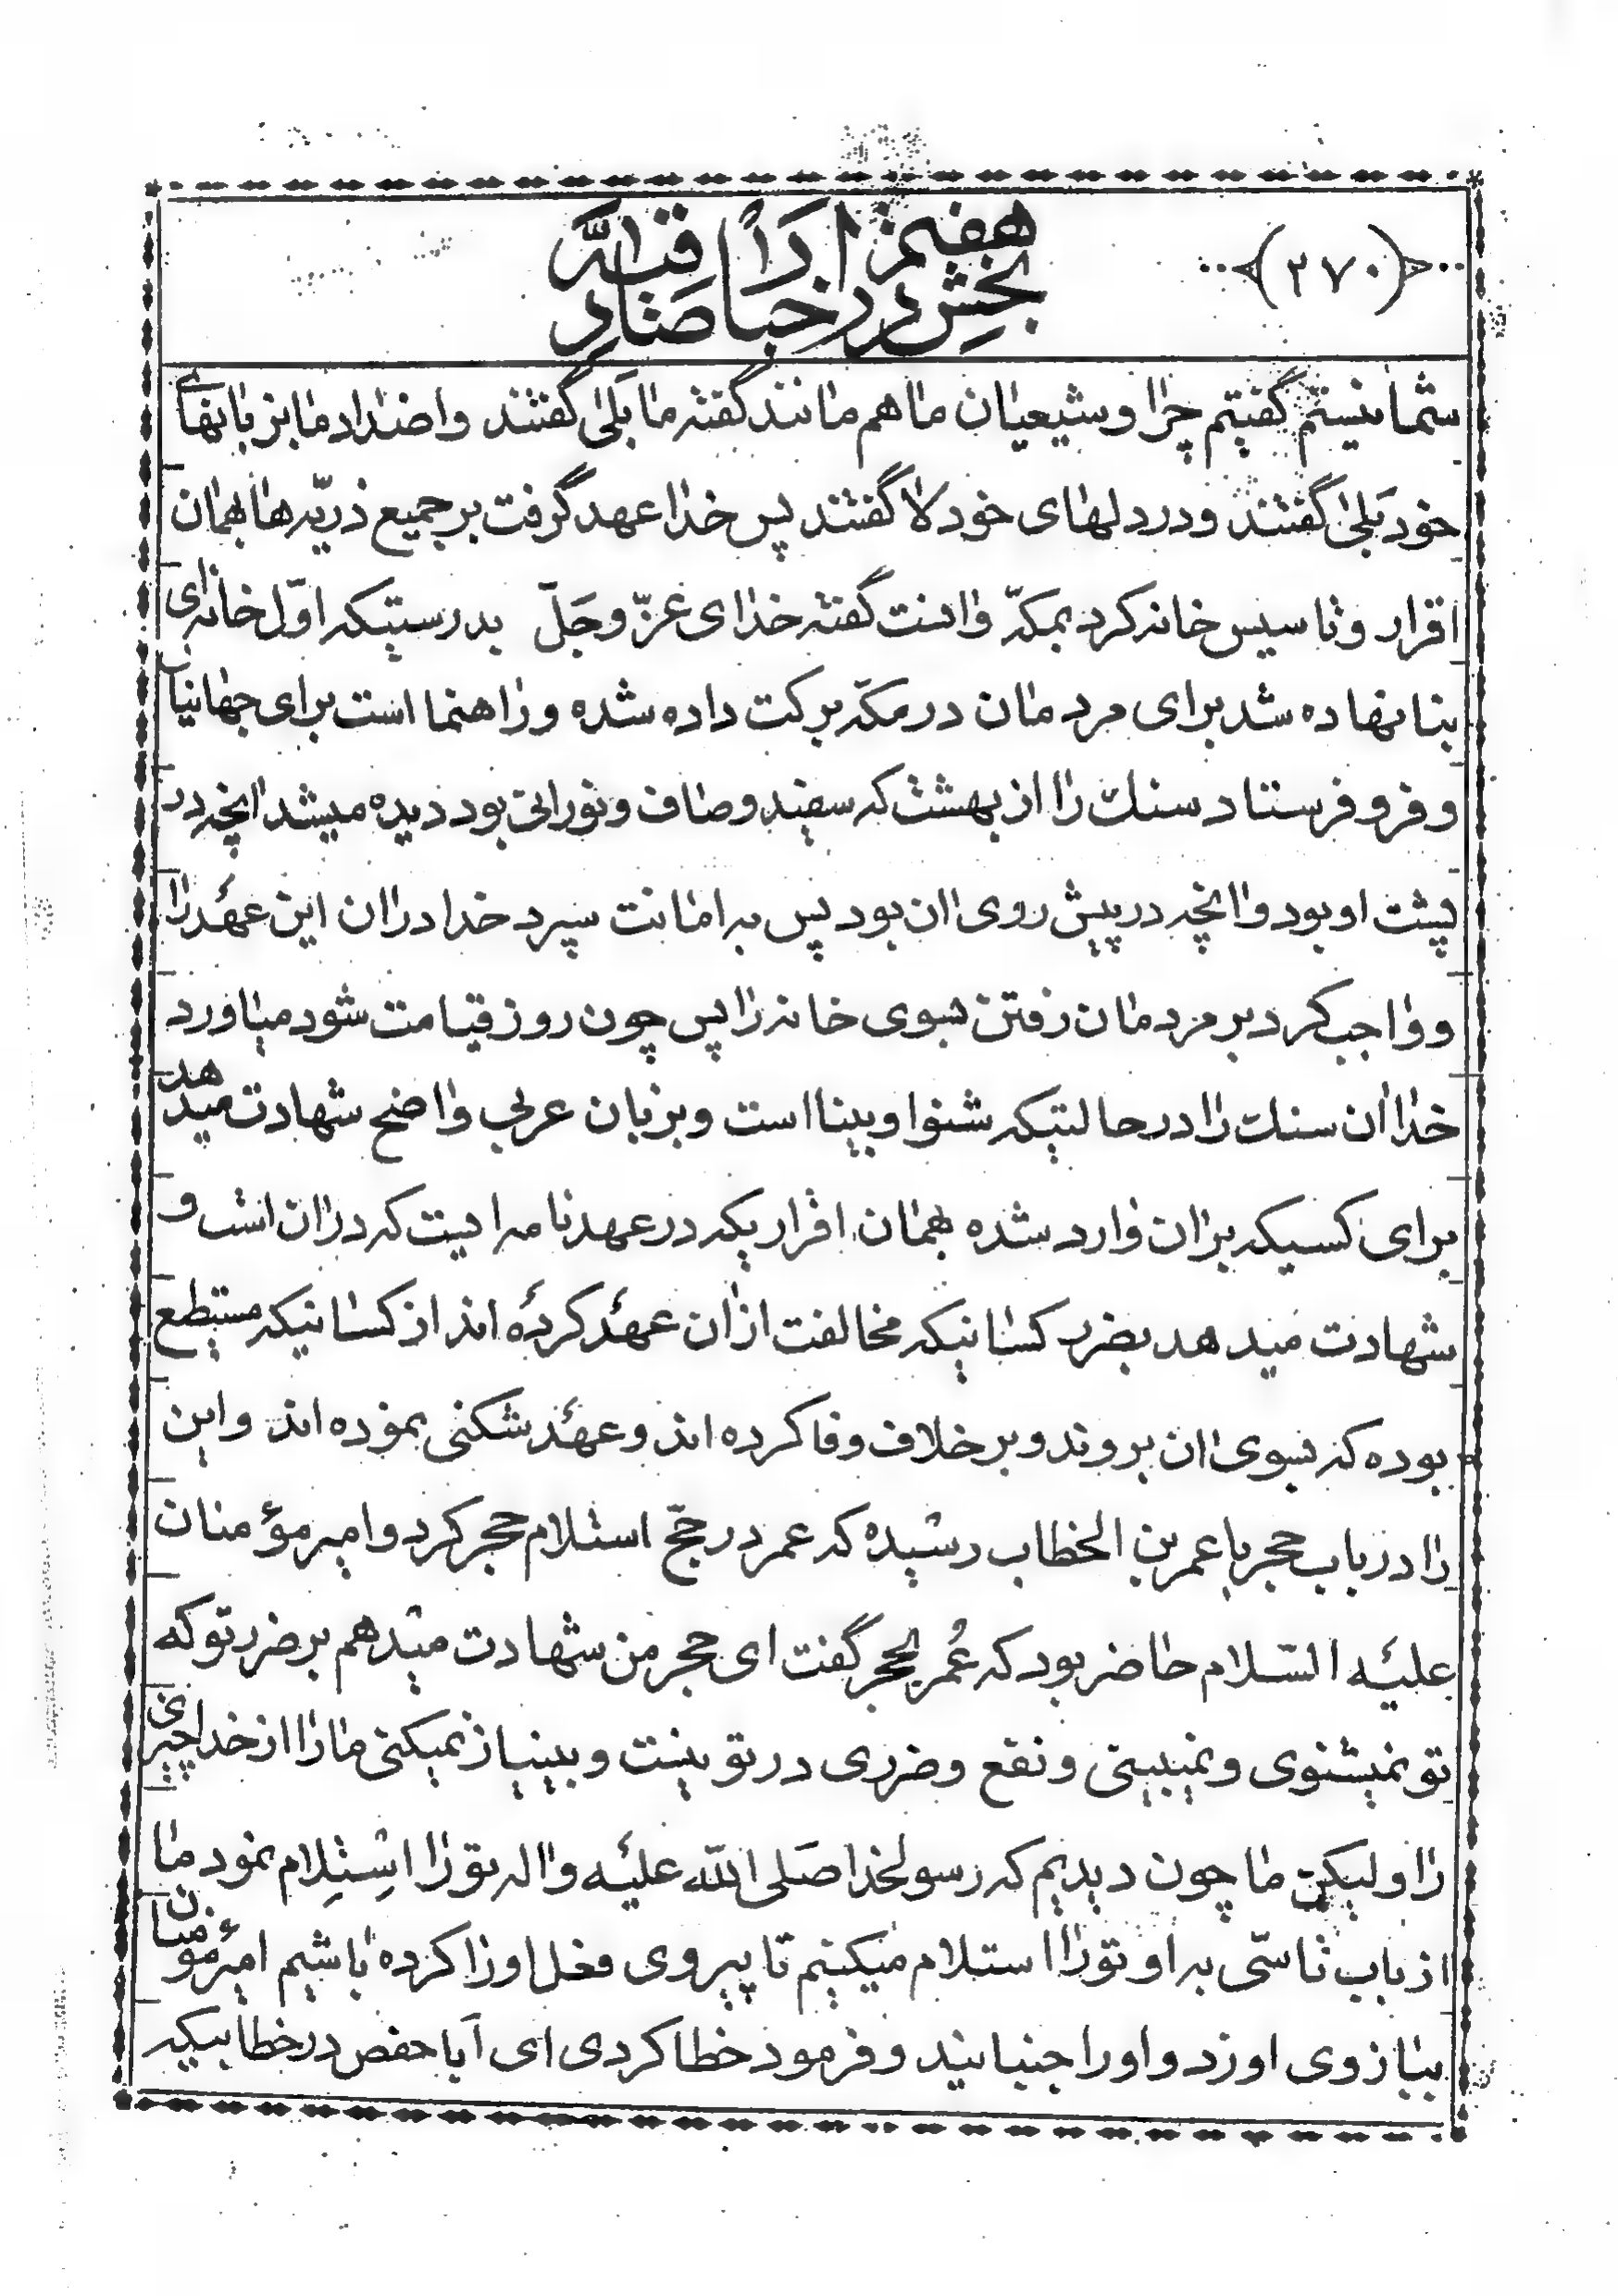 (۲۷۰)
بخش هفتم در اخبار صادقه
شما نیستم گفتم چرا و شیعیان ما هم مانند گفته ما بلی گفتند و اضداد ما بزبانهای
خود بلی گفتند و در دلهای خود لا گفتند پس خدا عهد گرفت بر جمیع ذریّه ها بهمان
اقرار و تاسیس خانه کرد بمکّه و اینست گفته خدای عزّ و جَلّ بدرستیکه اوّل خانه ای
بنا نهاده شد برای مردمان در مکّه برکت داده شده و راهنما است برای جهانیان
و فرو فرستاد سنك را از بهشت که سفید و صاف و نورانی بود دیده میشد انچه در
پشت او بود و انچه در پیش روی ان بود پس به امانت سپرد خدا در ان این عهد را
و واجب کرد بر مردمان رفتن بسوی خانه را پس چون روز قیامت شود میاورد
خدا ان سنك را در حالتیکه شنوا و بینا است و بزبان عربی واضح شهادت میدهد
برای کسیکه بر ان وارد شده بهمان اقراریکه در عهدنامه ایست که در ان است و
شهادت میدهد بضرر کسانیکه مخالفت از ان عهد کرده اند از کسانیکه مستطیع
بوده که بسوی ان بروند و بر خلاف وفا کرده اند و عهد شکنی نموده اند و این
را در باب حجر با عمر بن الخطاب رسیده که عمر در حجّ استلام حجر کرد و امیر مؤمنان
علیه السّلام حاضر بود که عُمر بحجر گفت ای حجر من شهادت میدهم بر ضرر تو که
تو نمیشنوی و نمیبینی و نفع و ضرری در تو نیست و بینیاز نمیکنی ما را از خدا چیزی
را و لیکن ما چون دیدیم که رسولخدا صَلی الله علیه و اله تو را اِستِلام نمود ما
از باب تاسّی به او تو را استلام میکنیم تا پیروی فعل او را کرده باشیم امیرمؤمنان
ببازوی او زد و او را جنبانید و فرمود خطا کردی ای اَبا حفص در خطابیکه